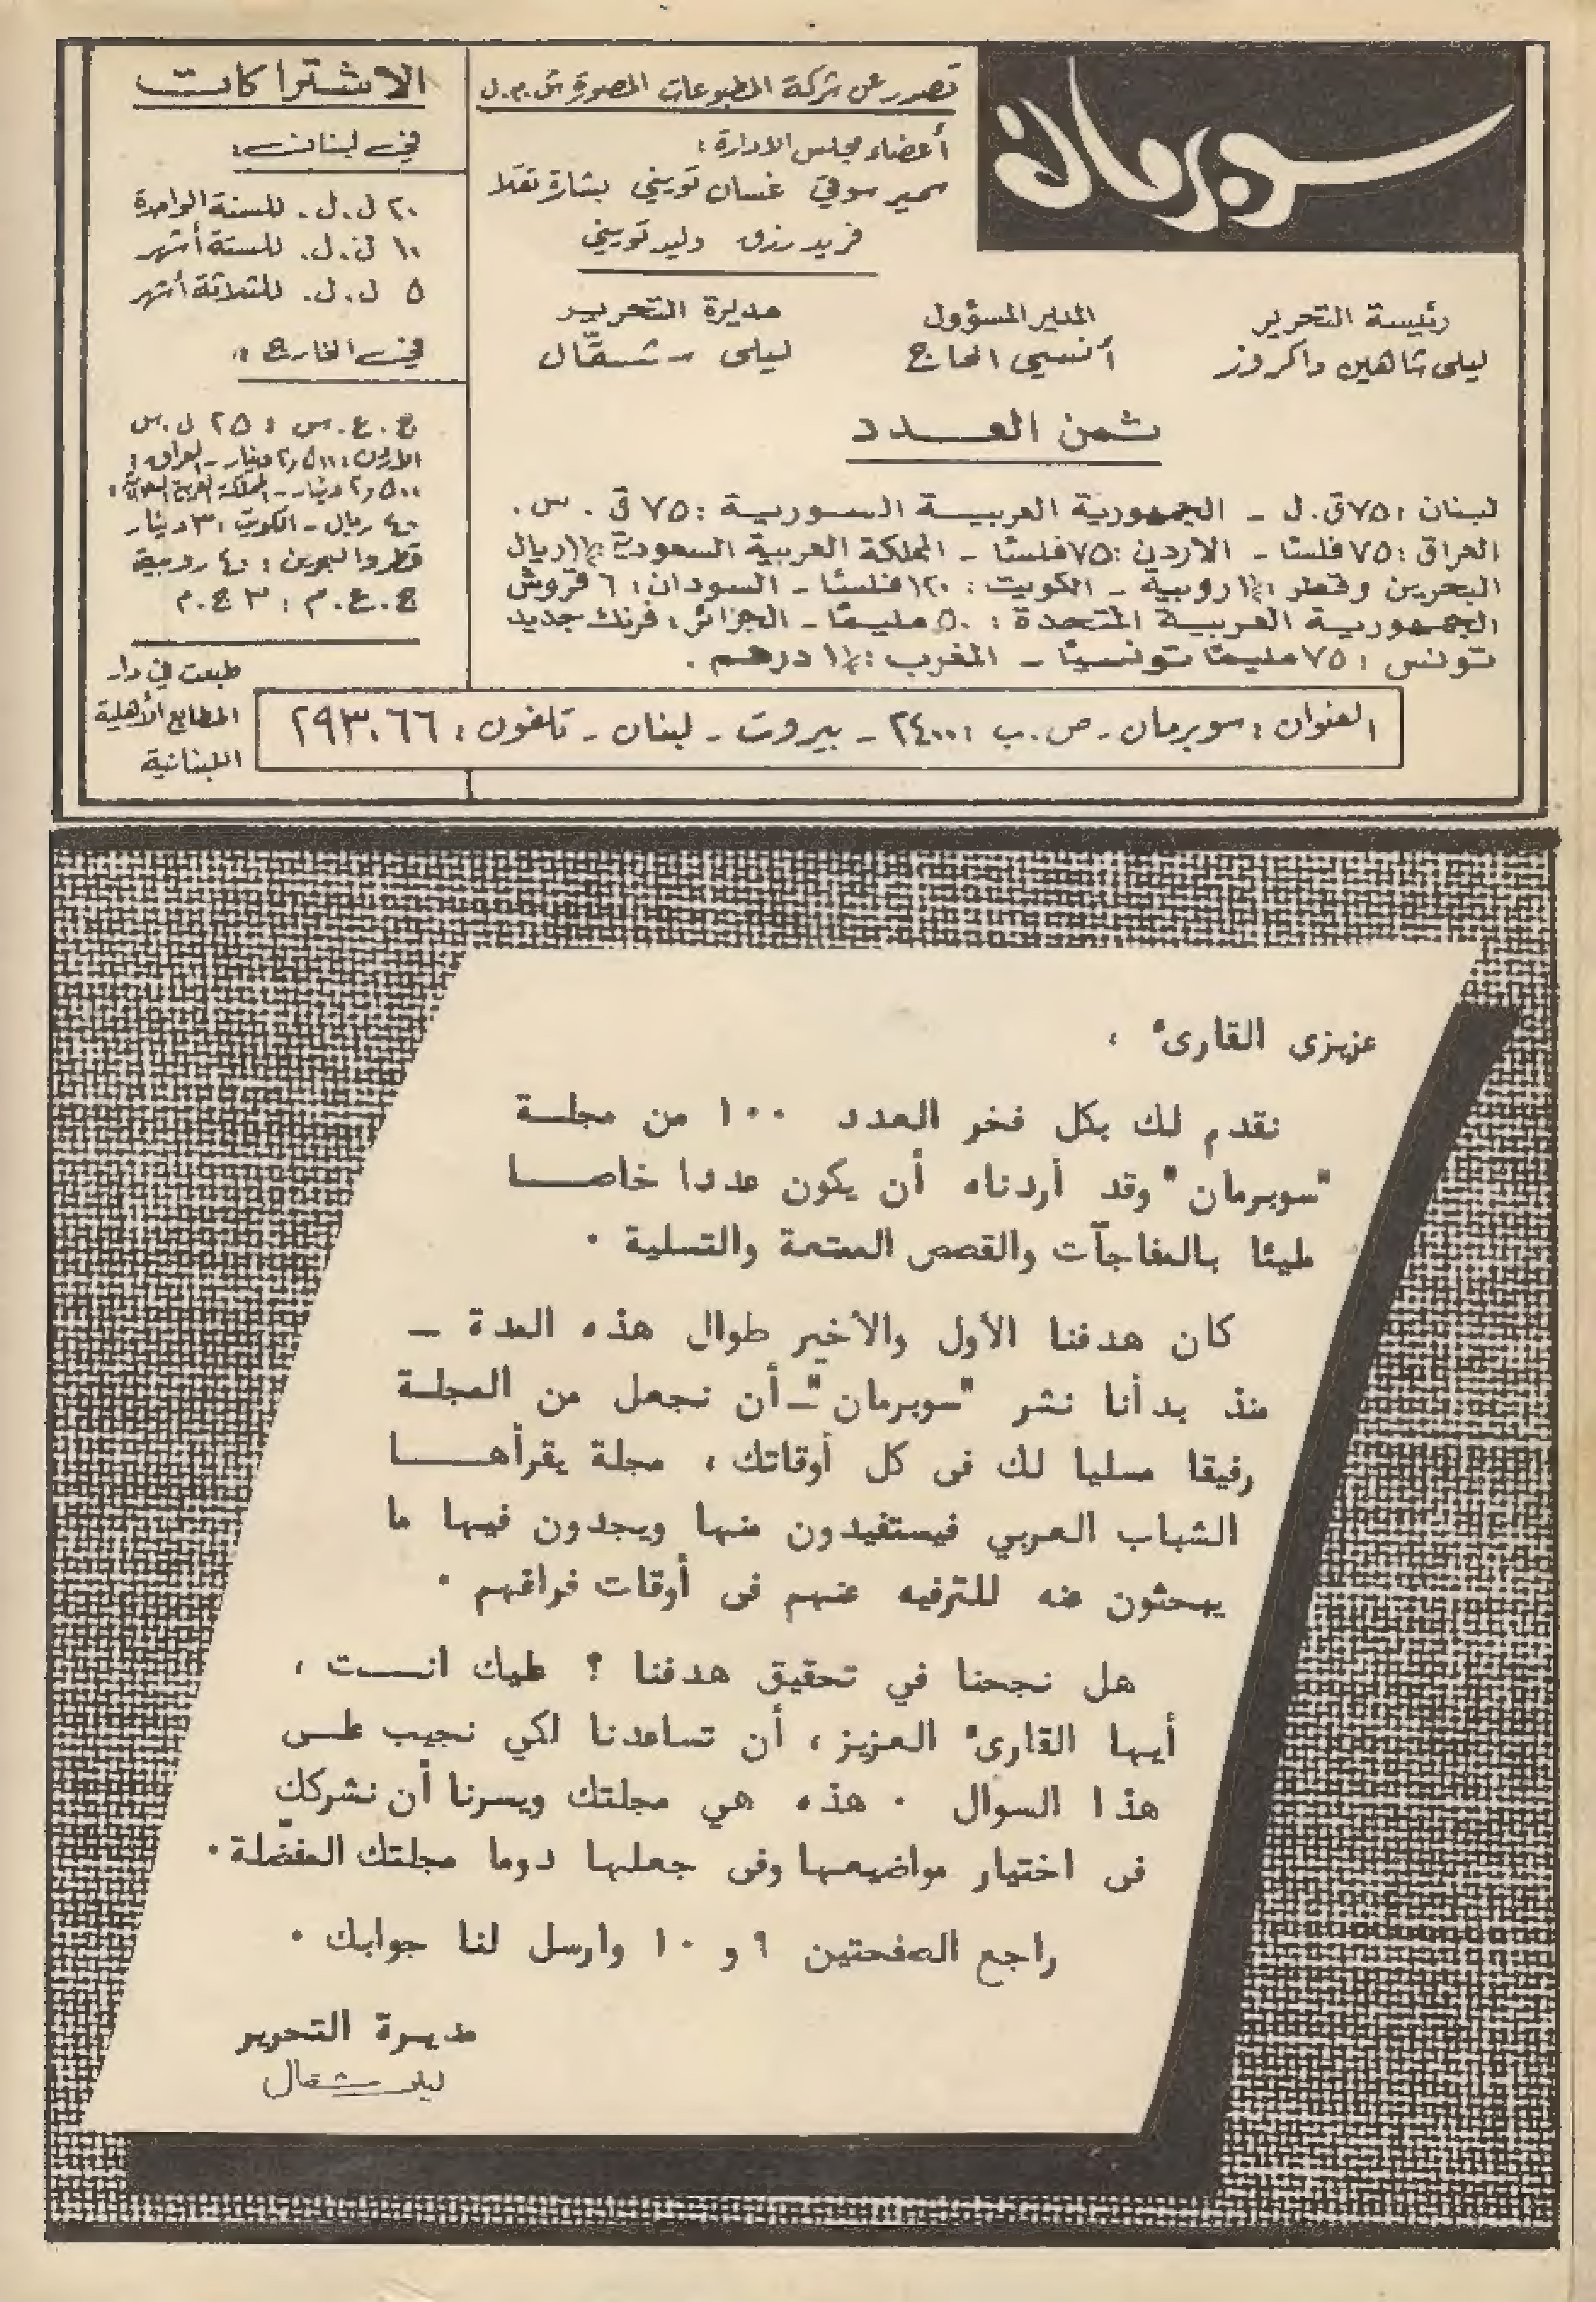 سوبرمان
تصدر عن شركة المطبوعات المصورة ش.م.ل
أعضاء مجلس الادارة :
سمير سوقي غسان تويني بشارة تقلا
فريد رزق وليد تويني
رئيسة التحرير
ليلى شاهين داكروز
المدير المسؤول
أنسي الحاج
مديرة التحرير
ليلى شقّال
ثمن العدد
لبنان : ٧٥ ق.ل - الجمهورية العربية السورية : ٧٥ ق . س .
العراق : ٧٥ فلسًا - الاردن : ٧٥ فلسًا - المملكة العربية السعودية : ١½ ريال
البحرين وقطر : ١½ روبية - الكويت : ١٢٠ فلسًا - السودان : ٦ قروش
الجمهورية العربية المتحدة : ٥٠ مليمًا - الجزائر : فرنك جديد
تونس : ٧٥ مليمًا تونسيًا - المغرب : ١½ درهم .
العنوان : سوبرمان - ص.ب : ٢٤٠٠٠ - بيروت - لبنان - تلفون : ٢٩٣٠٦٦
الاشتراكات
في لبنان :
٢٠ ل.ل. للسنة الواحدة
١٠ ل.ل. للستة أشهر
٥ ل.ل. للثلاثة أشهر
في الخارج :
ج.ع.س : ٢٥ ل.س
الاردن : ٢٫٥٠٠ دينار - العراق :
٢٫٥٠٠ دينار - المملكة العربية السعودية :
٤٠ ريال - الكويت : ٣ دينار
قطر والبحرين : ٤٠ روبية
ج.ع.م : ٣ ج.م
طبعت في دار
المطابع الأهلية
اللبنانية
عزيزى القارئ ،
نقدم لك بكل فخر العدد ١٠٠ من مجلة
"سوبرمان" وقد أردناه أن يكون عددا خاصا
مليئا بالمفاجآت والقصص الممتعة والتسلية .
كان هدفنا الأول والأخير طوال هذه المدة -
منذ بدأنا نشر "سوبرمان" - أن نجعل من المجلة
رفيقا مسليا لك فى كل أوقاتك ، مجلة يقرأها
الشباب العربي فيستفيدون منها ويجدون فيها ما
يبحثون عنه للترفيه عنهم فى أوقات فراغهم .
هل نجحنا في تحقيق هدفنا ؟ عليك انت ،
أيها القارئ العزيز ، أن تساعدنا لكي نجيب على
هذا السوال . هذه هي مجلتك ويسرنا أن نشركك
فى اختيار مواضيعها وفى جعلها دوما مجلتك المفضّلة .
راجع الصفحتين ٩ و ١٠ وارسل لنا جوابك .
مديرة التحرير
ليلى شقال